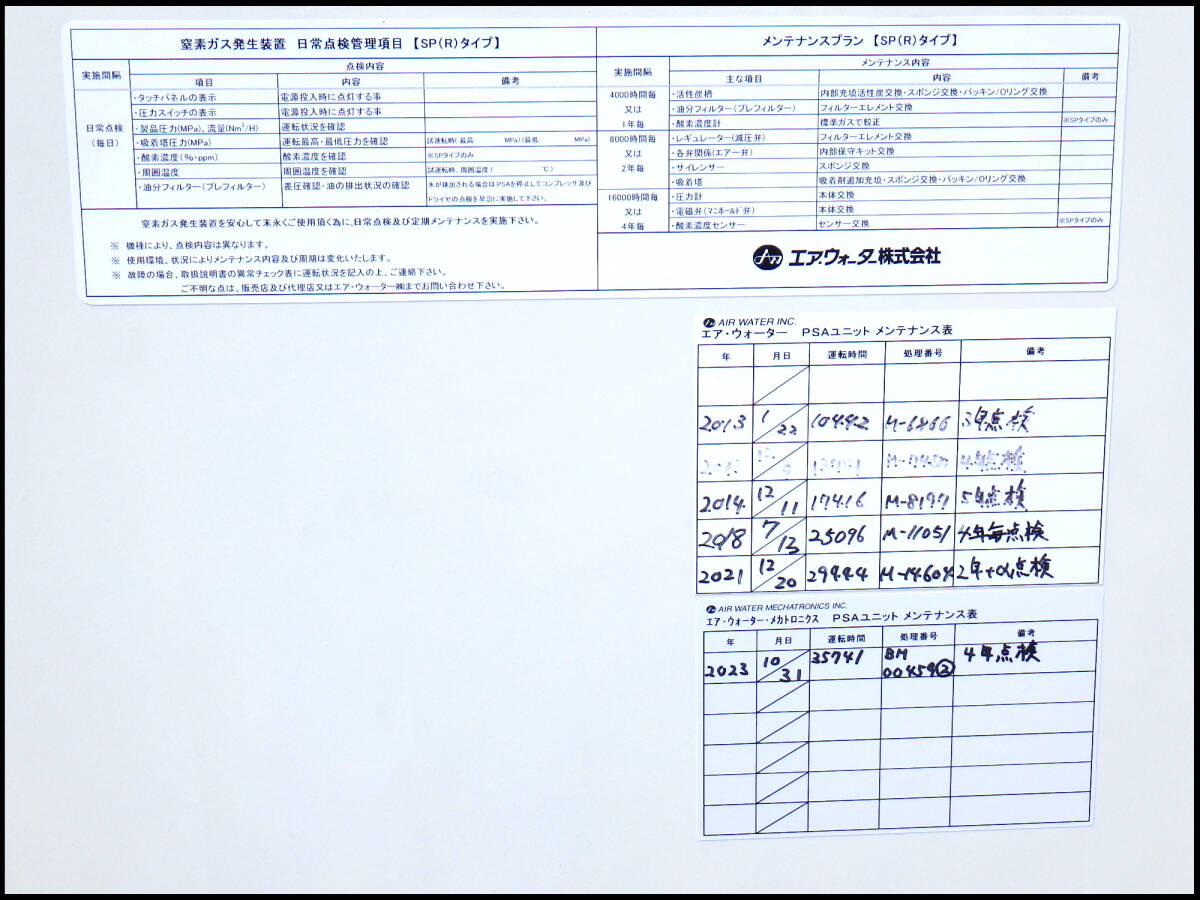 窒素ガス発生装置 日常点検管理項目 【SP(R)タイプ】
実施間隔 点検内容
項目 内容 備考
日常点検
(毎日)
・タッチパネルの表示 電源投入時に点灯する事
・圧力スイッチの表示 電源投入時に点灯する事
・製品圧力(MPa)、流量(Nm³/H) 運転状況を確認
・吸着塔圧力(MPa) 運転最高・最低圧力を確認 試運転時(最高 MPa)(最低 MPa)
・酸素濃度(%・ppm) 酸素濃度を確認 ※SPタイプのみ
・周囲温度 周囲温度を確認 試運転時、周囲温度( ℃)
・油分フィルター(プレフィルター) 差圧確認・油の排出状況の確認 水が排出される場合はPSAを停止してコンプレッサ及び
ドライヤの点検を早急に実施して下さい。
窒素ガス発生装置を安心して末永くご使用頂く為に、日常点検及び定期メンテナンスを実施下さい。
※ 機種により、点検内容は異なります。
※ 使用環境、状況によりメンテナンス内容及び周期は変化いたします。
※ 故障の場合、取扱説明書の異常チェック表に運転状況を記入の上、ご連絡下さい。
ご不明な点は、販売店及び代理店又はエア・ウォーター㈱までお問い合わせ下さい。
メンテナンスプラン 【SP(R)タイプ】
実施間隔 メンテナンス内容
主な項目 内容 備考
4000時間毎 ・活性炭槽 内部充填活性炭交換・スポンジ交換・パッキン/Oリング交換
又は ・油分フィルター(プレフィルター) フィルターエレメント交換
1年毎 ・酸素濃度計 標準ガスで較正 ※SPタイプのみ
8000時間毎 ・レギュレーター(減圧弁) フィルターエレメント交換
又は ・各弁関係(エアー弁) 内部保守キット交換
2年毎 ・サイレンサー スポンジ交換
・吸着塔 吸着剤追加充填・スポンジ交換・パッキン/Oリング交換
16000時間毎 ・圧力計 本体交換
又は ・電磁弁(マニホールド弁) 本体交換
4年毎 ・酸素濃度センサー センサー交換 ※SPタイプのみ
エア・ウォーター株式会社
AIR WATER INC.
エア・ウォーター PSAユニット メンテナンス表
年 月日 運転時間 処理番号 備考
2013 1/22 10442 M-6866 3年点検
4年点検
2014. 12/11 17416 M-8197 5年点検
2018 7/13 25096 M-11051 4年毎点検
2021 12/20 29444 M-14604 2年+α点検
AIR WATER MECHATRONICS INC.
エア・ウォーター・メカトロニクス PSAユニット メンテナンス表
年 月日 運転時間 処理番号 備考
2023 10/31 35741 BM 4年点検
00459②